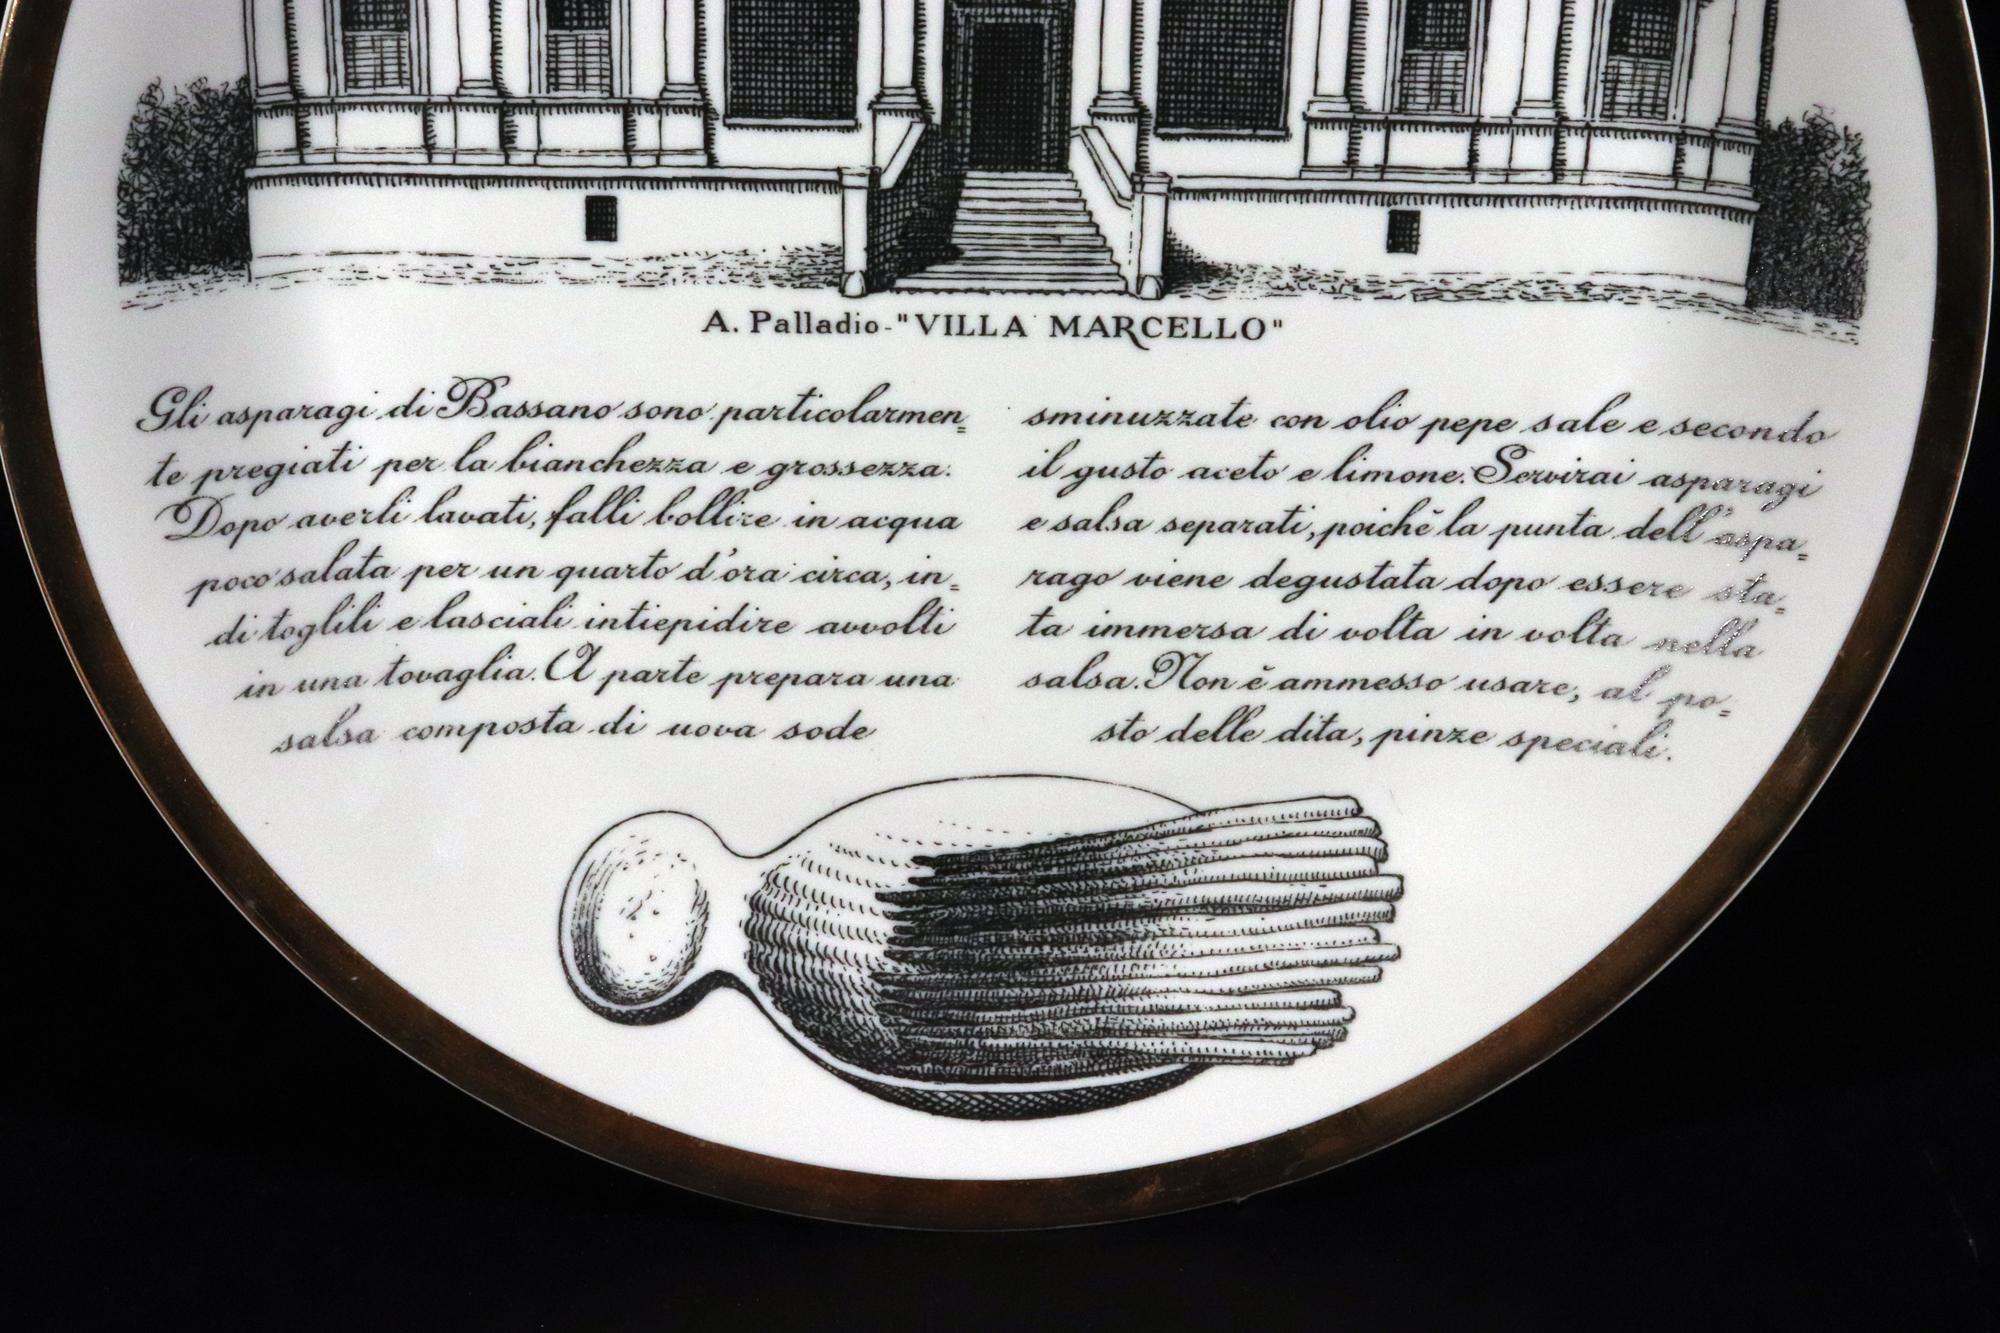 A. Palladio - "VILLA MARCELLO"
Gli asparagi di Bassano sono particolarmen=
te pregiati per la bianchezza e grossezza.
Dopo averli lavati, falli bollire in acqua
poco salata per un quarto d'ora circa, in=
di toglili e lasciali intiepidire avvolti
in una tovaglia. A parte prepara una
salsa composta di uova sode
sminuzzate con olio pepe sale e secondo
il gusto aceto e limone. Servirai asparagi
e salsa separati, poichè la punta dell'aspa=
rago viene degustata dopo essere sta=
ta immersa di volta in volta nella
salsa. Non è ammesso usare, al po=
sto delle dita, pinze speciali.